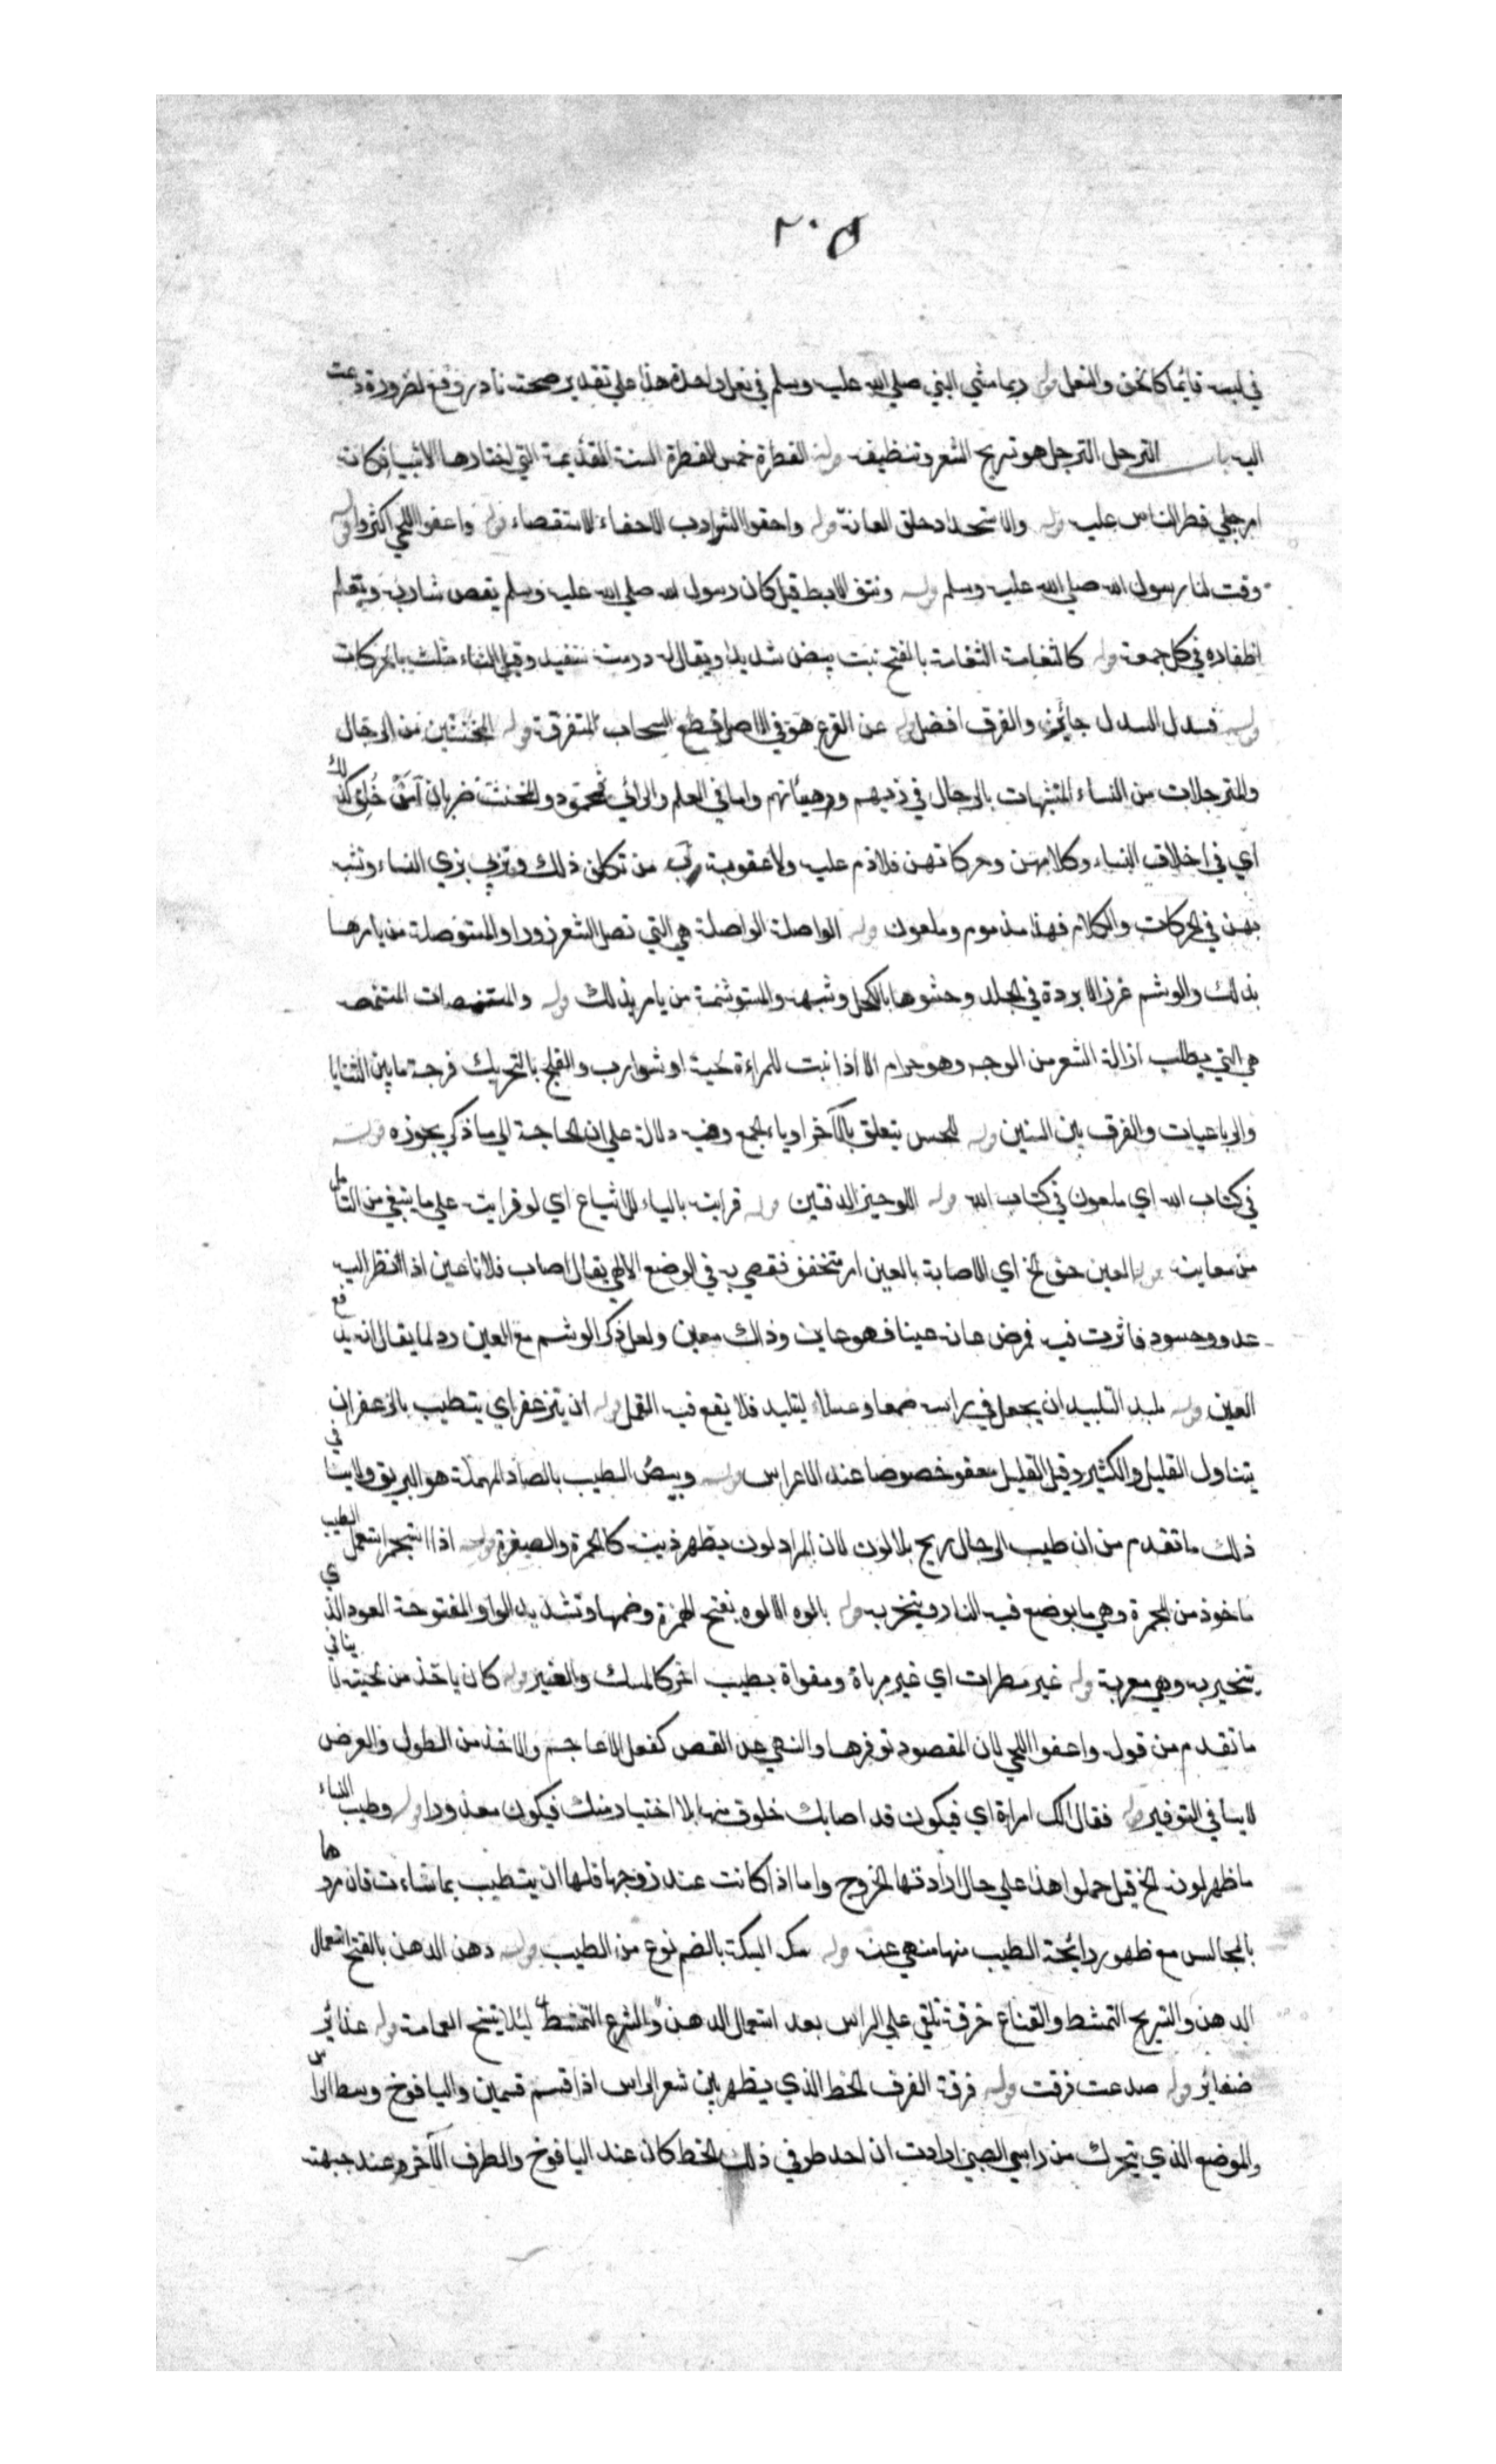 ٢٠٥
في لبسه قائما كالخف والنعل قوله ربما مشي النبي صلي الله عليه وسلم في نعل واحدة هذا علي تقدير صحته نادر وقع لضرورة دعت
اليه باب الترجل الترجل هو تسريح الشعر وتنظيفه قوله الفطرة خمس الفطرة السنة القديمة التي اختارها الانبياء فكانه
امر جبلي فطر الناس عليه قوله والاستحداد حلق العانة قوله واحفوا الشوارب الاحفاء الاستقصاء قوله واعفوا اللحي اكثروا قوله
وقت لنا رسول الله صلي الله عليه وسلم قوله ونتف الابط قيل كان رسول الله صلي الله عليه وسلم يقص شاربه ويقلم
اظفاره في كل جمعة قوله كالثغامة الثغامة بالفتح نبت يبيض شديدا ويقال له درمنه سفيد وقيل الثاء مثلث بالحركات
قوله فسدل السدل جائز والفرق افضل قوله عن القزع هو في الاصل قطع السحاب المتفرقة قوله المخنثين من الرجال
والمترجلات من النساء المتشبهات بالرجال في زيهم وهيئاتهم واما في العلم والرأي فمحمود والمخنث ضربان من خلق كذلك
اي في اخلاق النساء وكلامهن وحركاتهن فلا ذم عليه ولا عقوبة من تكلف ذلك وتزيي بزي النساء وتشبه
بهن في الحركات والكلام فهذا مذموم وملعون قوله الواصلة الواصلة هي التي تصل الشعر زورا والمستوصلة من يامرها
بذلك والوشم غرز الابرة في الجلد وحشوها بالكحل وشبهه والمستوشمة من يامر بذلك قوله والمتنمصات المتنمصة
هي التي يطلب ازالة الشعر من الوجه وهو حرام الا اذا نبت للمراءة لحية او شوارب والفلج بالتحريك فرجة ما بين الثنايا
والرباعيات والفرق بين السنين قوله للحسن يتعلق بالآخر او بالجمع وفيه دلالة علي ان الحاجة الي ما ذكر يجوزه قوله
في كتاب الله اي ملعون في كتاب الله قوله اللوحين الدفتين قوله قرايته بالياء للاشباع اي لو قرايته علي ما ينبغي من التامل
من معانيه قوله العين حق الخ اي الاصابة بالعين امر متحقق نقضي به في الوضع الالهي يقال اصاب فلانا عين اذا نظر اليه
عدو وحسود فاثرت فيه فمرض عانه عينا فهو عاين وذاك معين ولعل ذكر الوشم مع العين رد لما يقال انه يدفع
العين قوله ملبد التلبيد ان يجعل في راسه صمغا وعسلا ليتلبد فلا يقع فيه القمل قوله ان يتزعفر اي يتطيب بالزعفران
يتناول القليل والكثير وقيل القليل معفو خصوصا عند الاعراس قوله وبيص الطيب بالصاد المهملة هو البريق ولا ينافي
ذلك ما تقدم من ان طيب الرجال ريح بلا لون لان المراد لون يظهر زينته كالحمرة والصفرة قوله اذا استجمر استعمل الطيب
ماخوذ من المجمرة وهي ما يوضع فيه النار ويتبخر به قوله بالوه الالوه بفتح الهمزة وضمها وتشديد الواو المفتوحة العود الذي
يتبخر به وهي معربة قوله غير مطرات اي غير مرباة ومقواة بطيب اخر كالمسك والعنبر قوله كان ياخذ من لحيته لا ينافي
ما تقدم من قوله واعفوا اللحي لان المقصود توفيرها والنهي عن القص كفعل الاعاجم والاخذ من الطول والعرض
لا ينافي التوفير قوله فقال الك امراة اي فيكون قد اصابك خلوق منها بلا اختيار منك فيكون معذورا قوله وطيب النساء
ما ظهر لونه الخ قيل حملوا هذا علي حال ارادتها الخروج واما اذا كانت عند زوجها فلها ان يتطيب بما شاءت فان مردها
بالمجالس مع ظهور رايحة الطيب منها منهي عنه قوله سكه السكة بالضم نوع من الطيب قوله دهن الدهن بالفتح استعمال
الدهن والتسريح التمشط والقناع خرقة تلقي علي الراس بعد استعمال الدهن والتمشط ليلا يتسخ العمامة قوله غدائر
ضفائر قوله صدعت فرقت قوله فرقه الفرق الخط الذي يظهر بين شعر الراس اذا قسم قسمين واليافوخ وسط الراس
والموضع الذي يتحرك من راس الصبي ارادت ان احد طرفي ذلك الخط كان عند اليافوخ والطرف الآخر عند جبهته